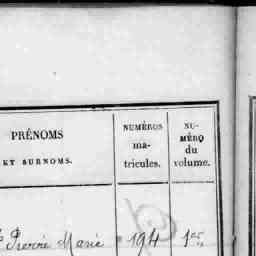 PRÉNOMS
ET SURNOMS.
NUMÉROS
ma-
tricules.
NU-
MÉRO
du
volume.
Pierre Marie 194 1er